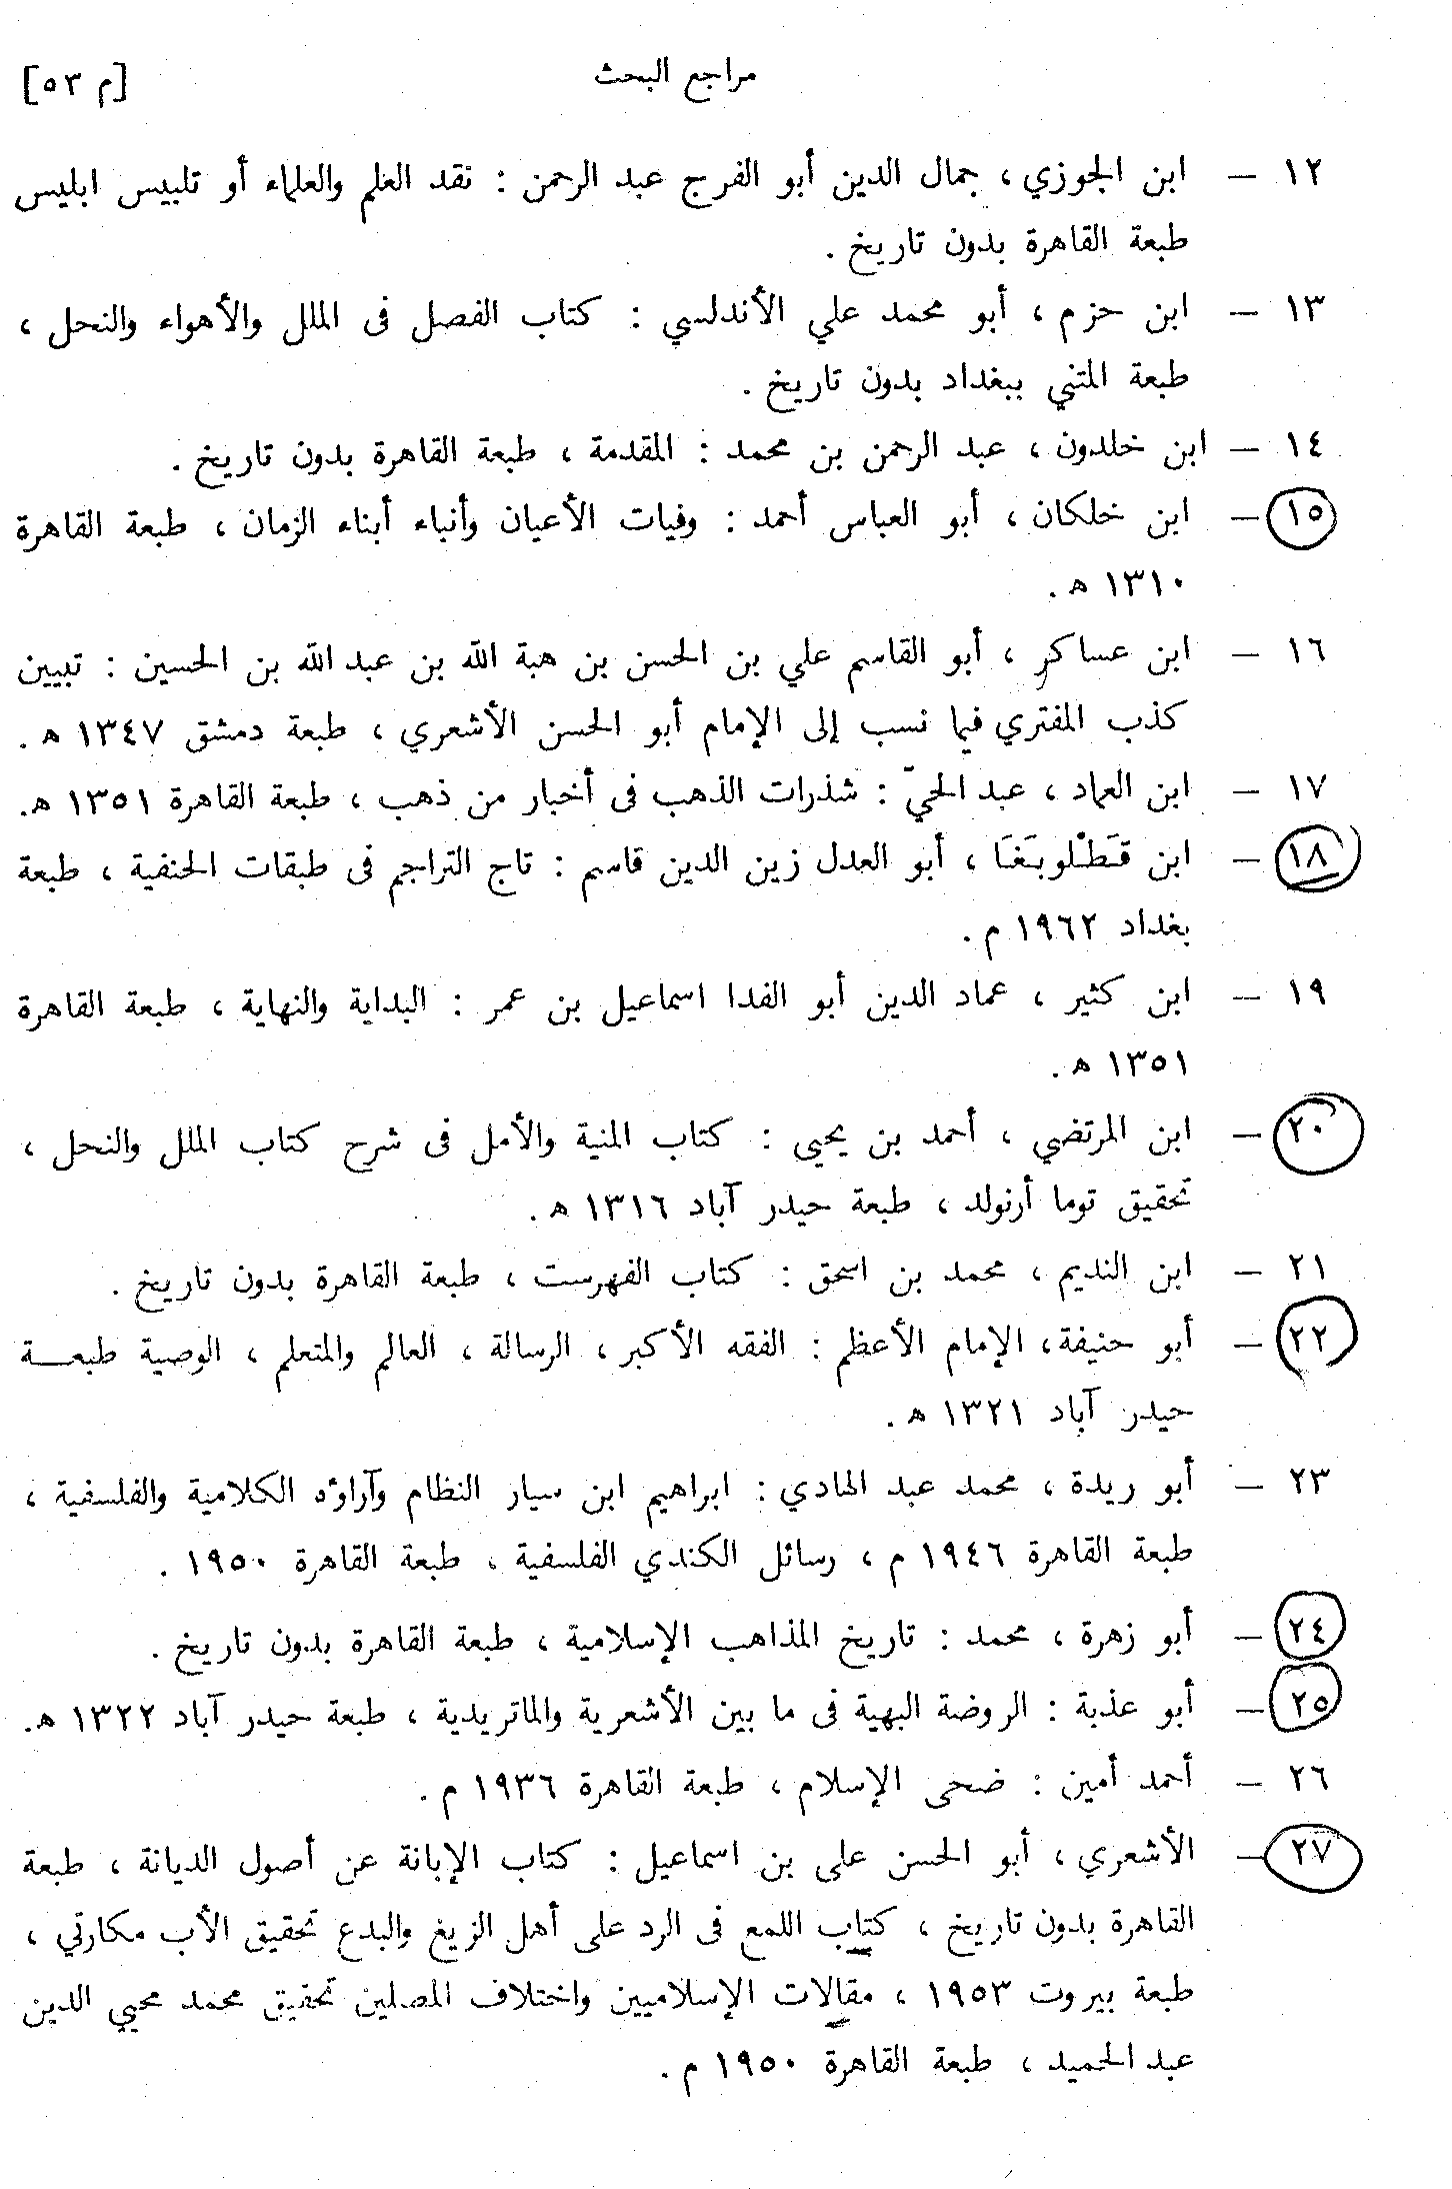 مراجع البحث [م ٥٣]
١٢ – ابن الجوزي، جمال الدين أبو الفرج عبد الرحمن : نقد العلم والعلماء أو تلبيس ابليس
طبعة القاهرة بدون تاريخ .
١٣ – ابن حزم ، أبو محمد علي الأندلسي : كتاب الفصل فى الملل والأهواء والنحل ،
طبعة المتني ببغداد بدون تاريخ .
١٤ – ابن خلدون ، عبد الرحمن بن محمد : المقدمة ، طبعة القاهرة بدون تاريخ .
١٥ – ابن خلكان ، أبو العباس أحمد : وفيات الأعيان وأنباء أبناء الزمان ، طبعة القاهرة
١٣١٠ ه .
١٦ – ابن عساكر ، أبو القاسم علي بن الحسن بن هبة الله بن عبد الله بن الحسين : تبيين
كذب المفتري فيما نسب إلى الإمام أبو الحسن الأشعري ، طبعة دمشق ١٣٤٧ ه .
١٧ – ابن العماد ، عبد الحيّ : شذرات الذهب فى أخبار من ذهب ، طبعة القاهرة ١٣٥١ ه.
١٨ – ابن قَطْلوبَغَا ، أبو العدل زين الدين قاسم : تاج التراجم فى طبقات الحنفية ، طبعة
بغداد ١٩٦٢ م .
١٩ – ابن كثير ، عماد الدين أبو الفدا اسماعيل بن عمر : البداية والنهاية ، طبعة القاهرة
١٣٥١ ه .
٢٠ – ابن المرتضي ، أحمد بن يحيى : كتاب المنية والأمل فى شرح كتاب الملل والنحل ،
تحقيق توما أرنولد ، طبعة حيدر آباد ١٣١٦ ه .
٢١ – ابن النديم ، محمد بن اسحق : كتاب الفهرست ، طبعة القاهرة بدون تاريخ .
٢٢ – أبو حنيفة، الإمام الأعظم : الفقه الأكبر ، الرسالة ، العالم والمتعلم ، الوصية طبعـــة
حيدر آباد ١٣٢١ ه .
٢٣ – أبو ريدة ، محمد عبد الهادي : ابراهيم ابن سيار النظام وآراؤه الكلامية والفلسفية ،
طبعة القاهرة ١٩٤٦ م ، رسائل الكندي الفلسفية ، طبعة القاهرة ١٩٥٠ .
٢٤ – أبو زهرة ، محمد : تاريخ المذاهب الإسلامية ، طبعة القاهرة بدون تاريخ .
٢٥ – أبو عذبة : الروضة البهية فى ما بين الأشعرية والماتريدية ، طبعة حيدر آباد ١٣٢٢ ه.
٢٦ – أحمد أمين : ضحى الإسلام ، طبعة القاهرة ١٩٣٦ م .
٢٧ – الأشعري ، أبو الحسن على بن اسماعيل : كتاب الإبانة عن أصول الديانة ، طبعة
القاهرة بدون تاريخ ، كتاب اللمع فى الرد على أهل الزيغ والبدع تحقيق الأب مكارتي ،
طبعة بيروت ١٩٥٣ ، مقالات الإسلاميين واختلاف المصلين تحقيق محمد محيي الدين
عبد الحميد ، طبعة القاهرة ١٩٥٠ م .